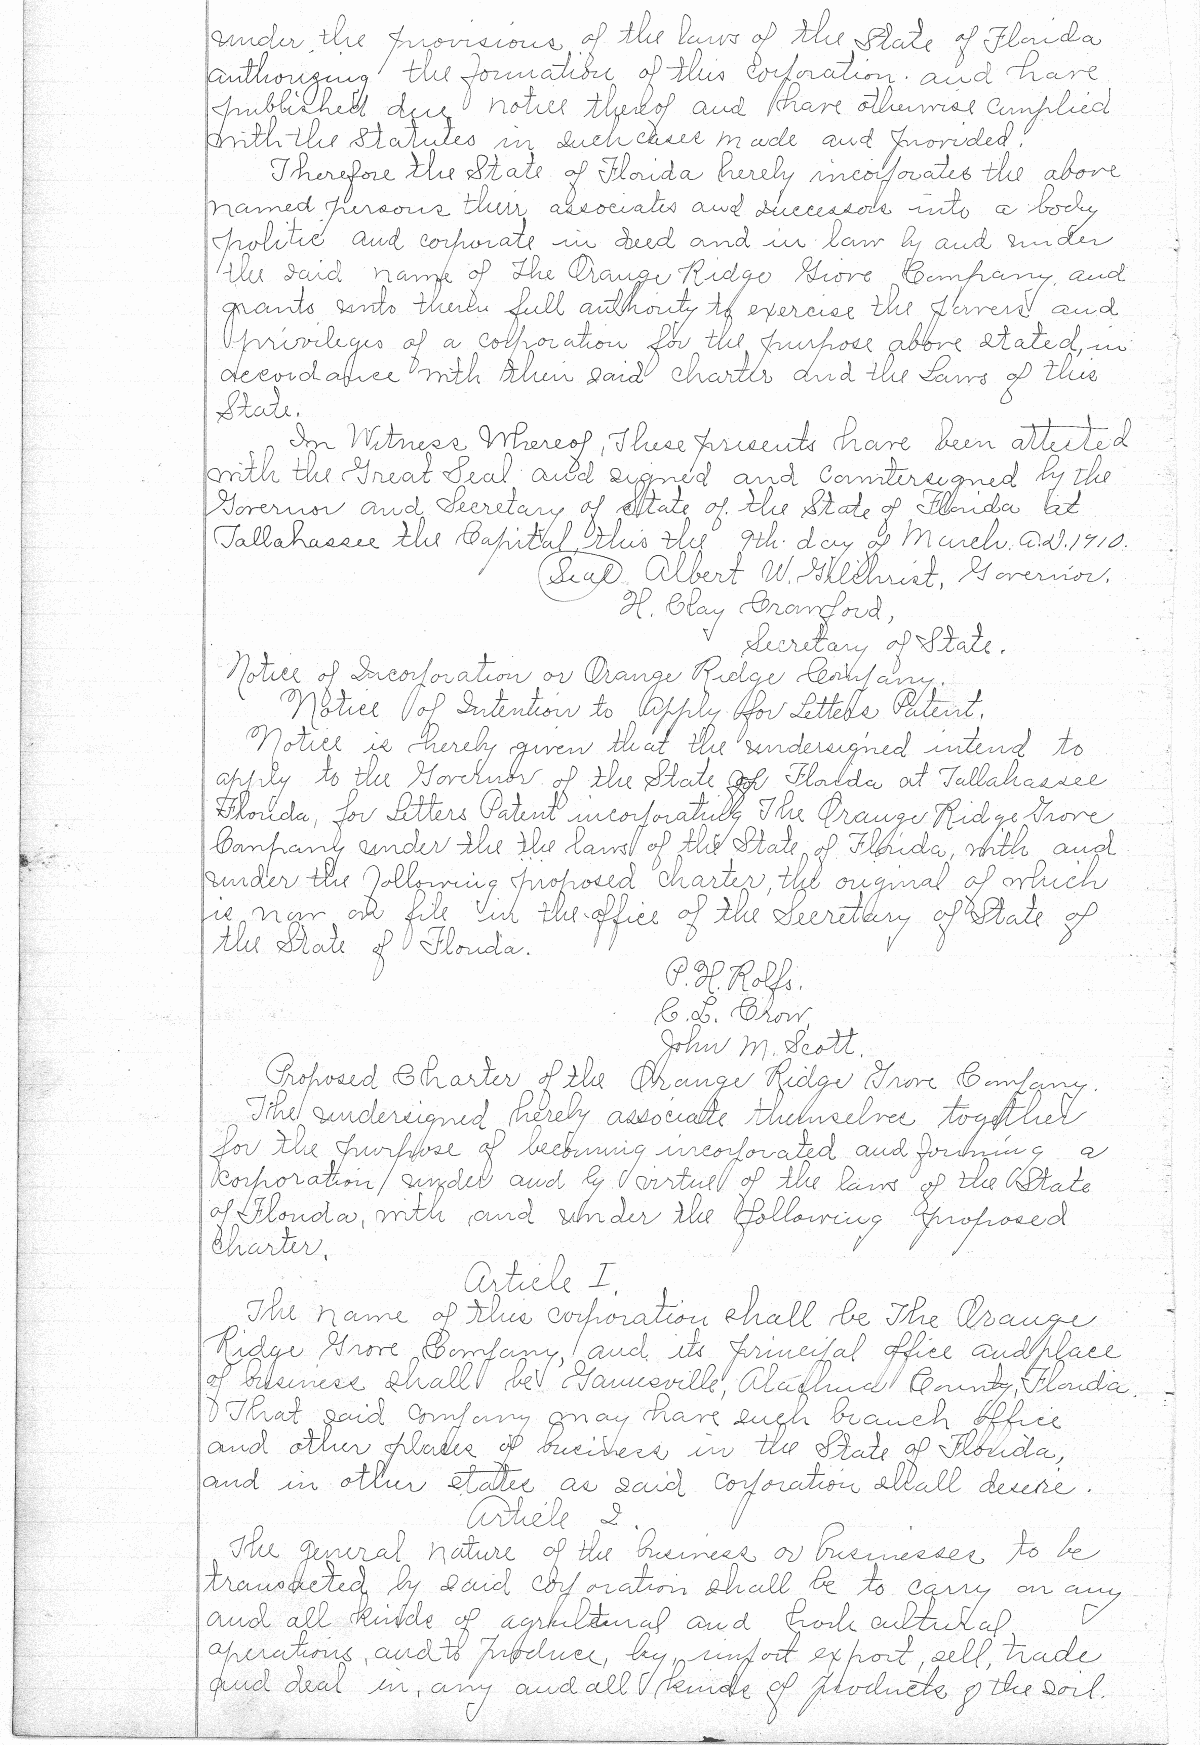 under the provisions of the laws of the State of Florida
authorizing the formation of this corporation. and have
published due notice thereof and have otherwise complied
with the Statutes in such cases made and provided.
Therefore the State of Florida hereby incorporates the above
named persons their associates and successors into a body
politic and corporate in deed and in law by and under
the said name of The Orange Ridge Grove Company, and
grants unto them full authority to exercise the powers and
privileges of a corporation for the purpose above stated, in
accordance with their said charter and the Laws of this
State.
In Witness Whereof, These presents have been attested
with the Great Seal and signed and countersigned by the
Governor and Secretary of State of the State of Florida at
Tallahassee the Capital, this the 9th day of March. A.D. 1910.
(Seal) Albert W. Gilchrist, Governor.
H. Clay Crawford,
Secretary of State.
Notice of Incorporation or Orange Ridge Company.
Notice of Intention to Apply for Letters Patent.
Notice is hereby given that the undersigned intend to
apply to the Governor of the State of Florida at Tallahassee
Florida, for Letters Patent incorporating The Orange Ridge Grove
Company under the the laws of the State of Florida, with and
under the following proposed charter, the original of which
is now on file in the office of the Secretary of State of
the State of Florida.
P. H. Rolfs.
C. L. Crow,
John M. Scott.
Proposed Charter of the Orange Ridge Grove Company.
The undersigned hereby associate themselves together
for the purpose of becoming incorporated and forming a
corporation under and by virtue of the laws of the State
of Florida, with and under the following proposed
charter.
Article I.
The name of this corporation shall be The Orange
Ridge Grove Company, and its principal office and place
of business shall be Gainesville, Alachua County, Florida.
That said company may have such branch office
and other places of business in the State of Florida,
and in other states as said corporation shall desire.
Article 2.
The general nature of the business or businesses to be
transacted by said corporation shall be to carry on any
and all kinds of agricultural and horticultural
operations, and to produce, buy, import export, sell, trade
and deal in, any and all kinds of products of the soil.